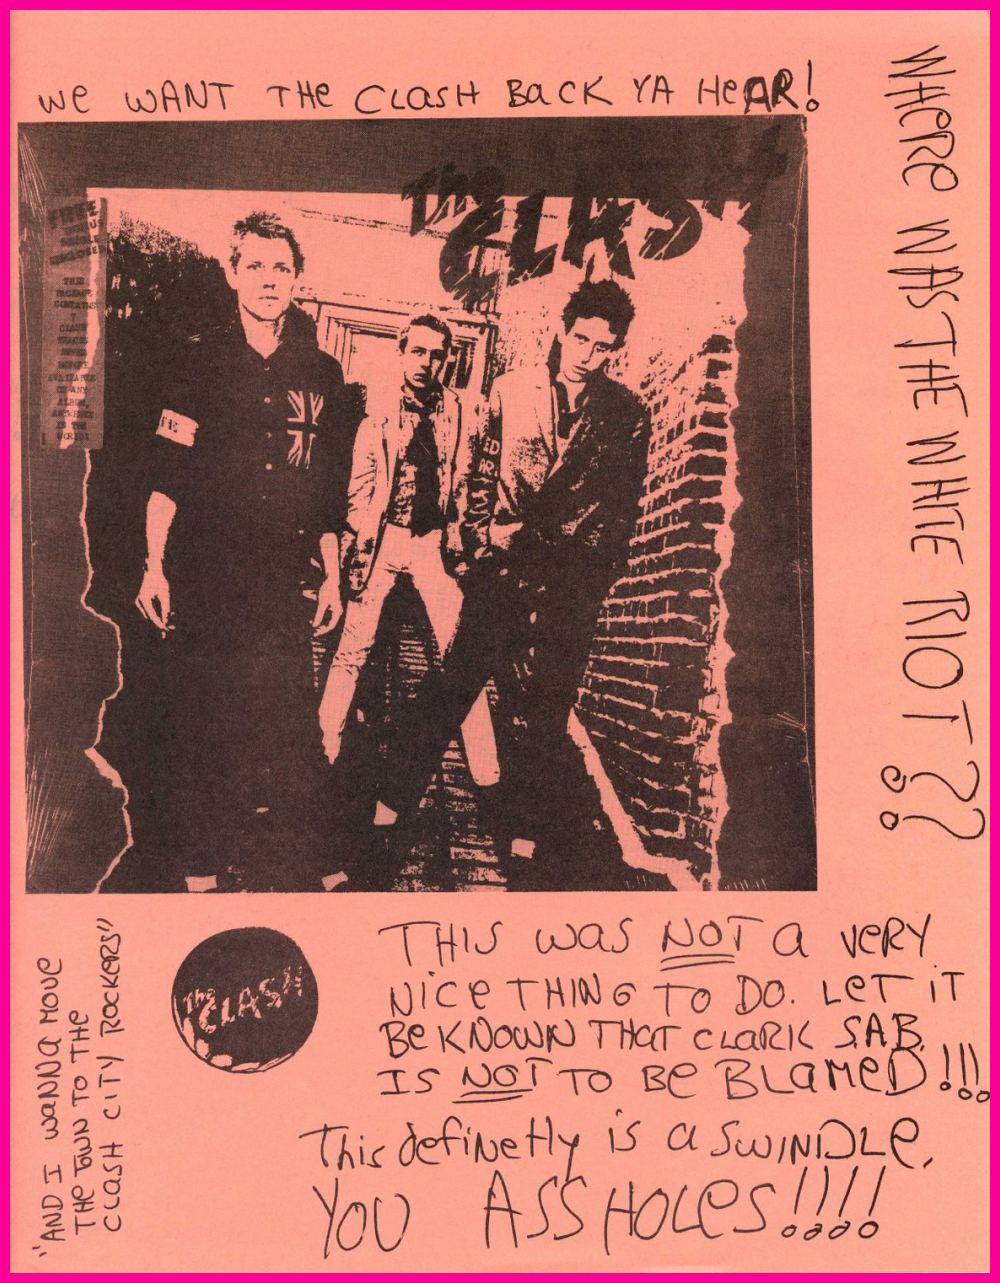 We WANT THe CLaSH BaCK YA HeAR!
WHeRe WAS THE WHITE RIOT??
THE CLASH
FREE
THIS
PACKAGE
CONTAINS
CLASH
TRACKS
NEVER
BEFORE
AVAILABLE
ON ANY
ALBUM,
ANYWHERE
IN THE
WORLD!
The CLASH
"AND I WaNNA MOVE
THE TOWN TO THE
CLASH CITY ROCKERS"
THIS WaS NOT a VeRY
NiCe THING TO DO. LeT iT
Be KNOWN THaT CLaRK S.A.B.
IS NOT TO Be BLaMeD!!!
This definetly is a SWINDLe.
YOU ASSHOLeS!!!!